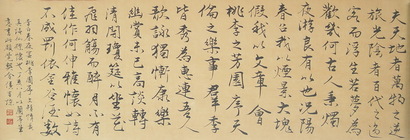 夫天地者萬物之逆
旅光陰者百代之過
客而浮生若夢為
歡幾何古人秉燭
夜遊良有以也況陽
春召我以煙景大塊
假我以文章會
桃李之芳園序天
倫之樂事羣季
皆秀為惠連吾人
歌詠獨慚康樂
幽賞未已高談轉
清開瓊筵以坐花
飛羽觴而醉月不有
佳作何伸雅懷如詩
不成罰依金谷酒數